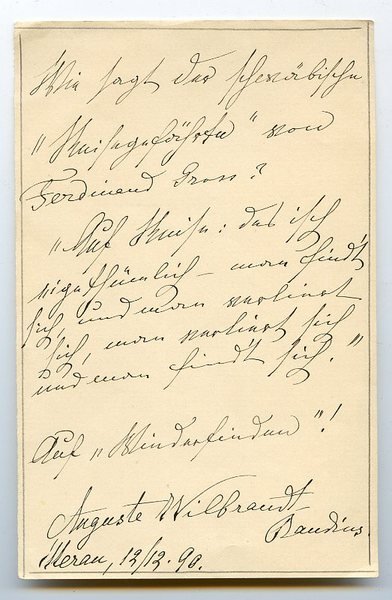 Wie sagt der schwäbische
„Reisegefährte" von
Ferdinand Gross?
„Auf Reise: das isch
eigethümlich – man findt'
sich, und man verliert
sich, man verliert sich
und man findt' sich."
Auf „Wiederfinden"!
Auguste Wilbrandt
Baudius.
Meran, 12/12. 90.